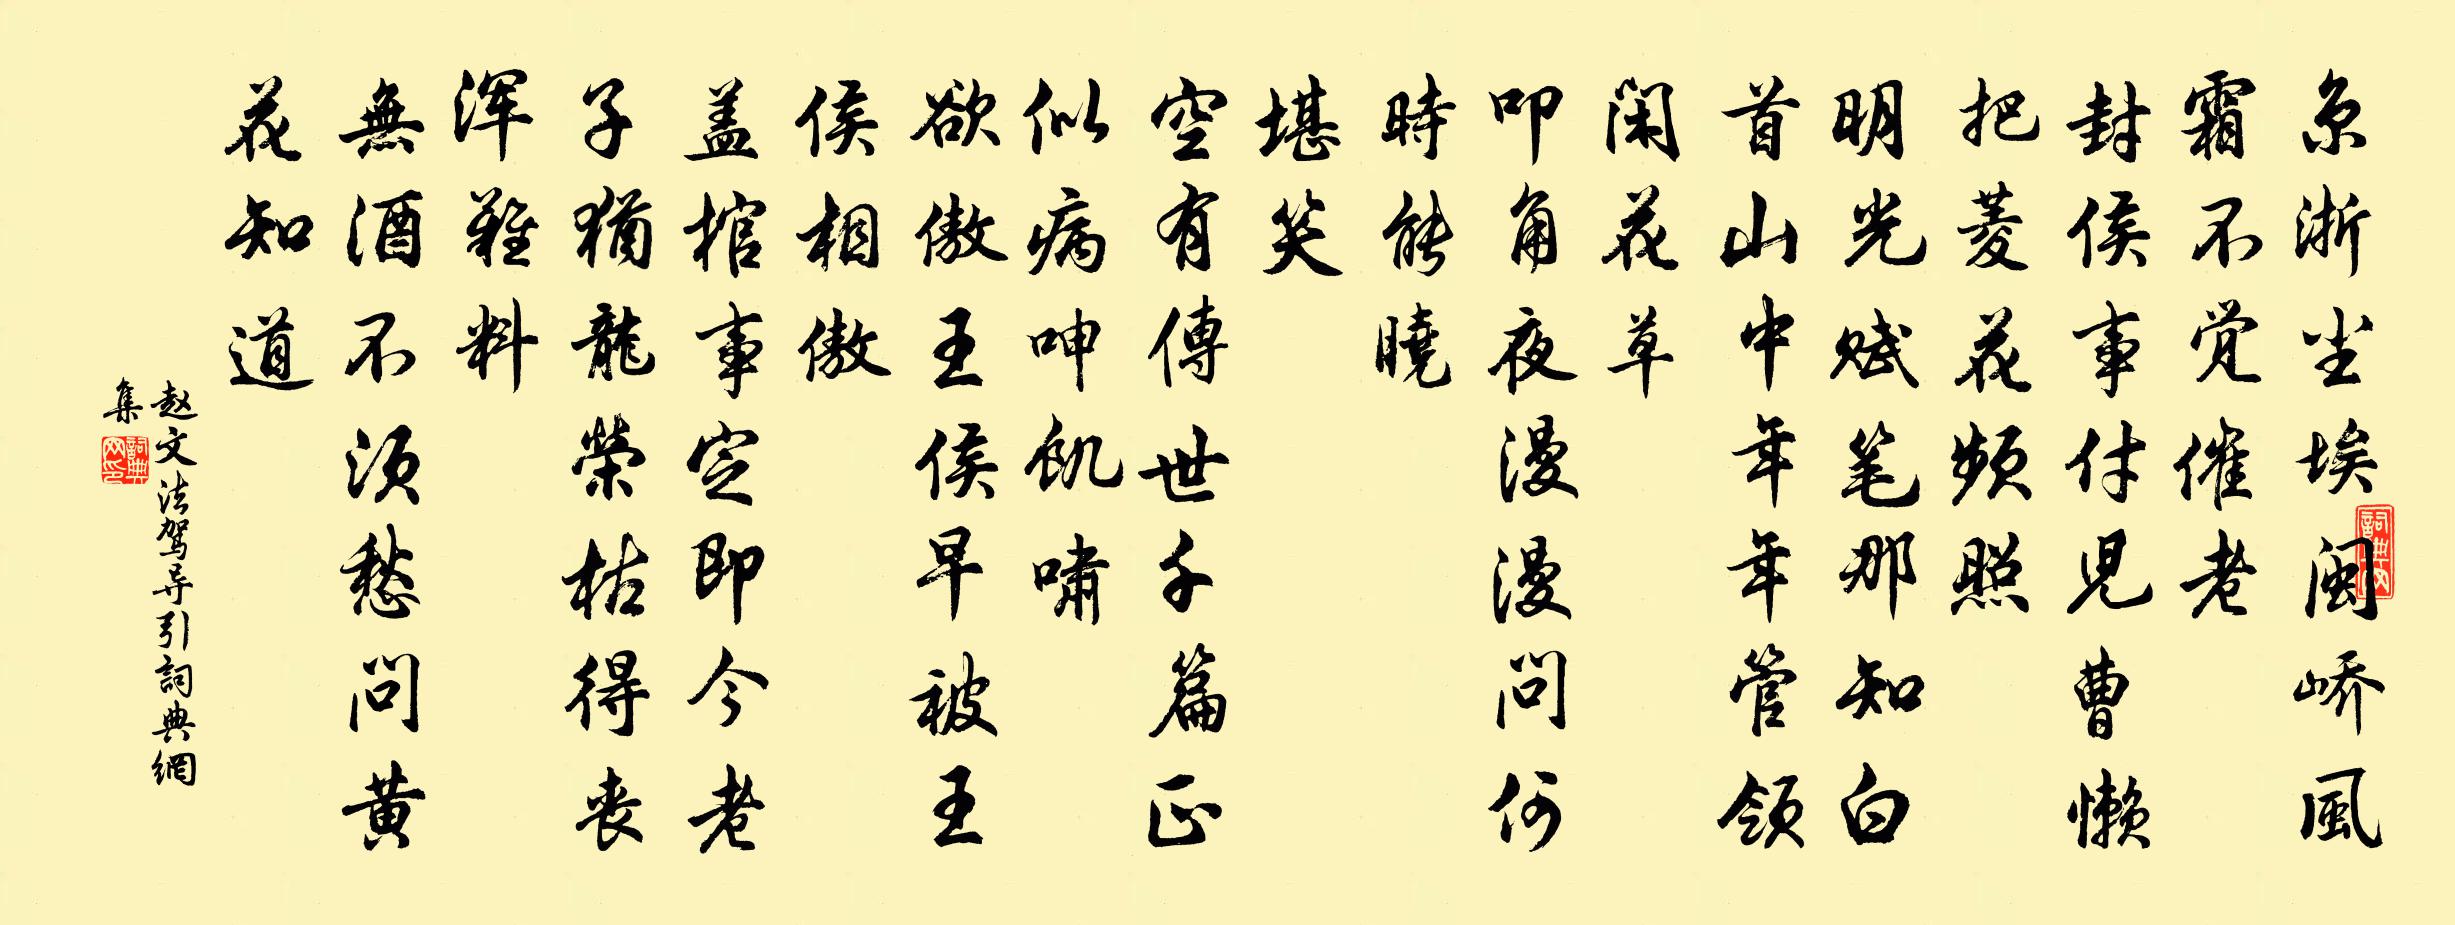 京浙尘埃闽峤風
霜不觉催老
封侯事付児曹懒
把菱花频照
明光赋笔那知白
首山中年年管领
闲花草
叩角夜漫漫问何
時能曉
堪笑
空有傳世千篇正
似病呻饥啸
欲傲王侯早被王
侯相傲
盖棺事定即今老
子犹龍荣枯得丧
浑難料
無酒不须愁问黄
花知道
赵文法驾导引詞典網
集
詞典網